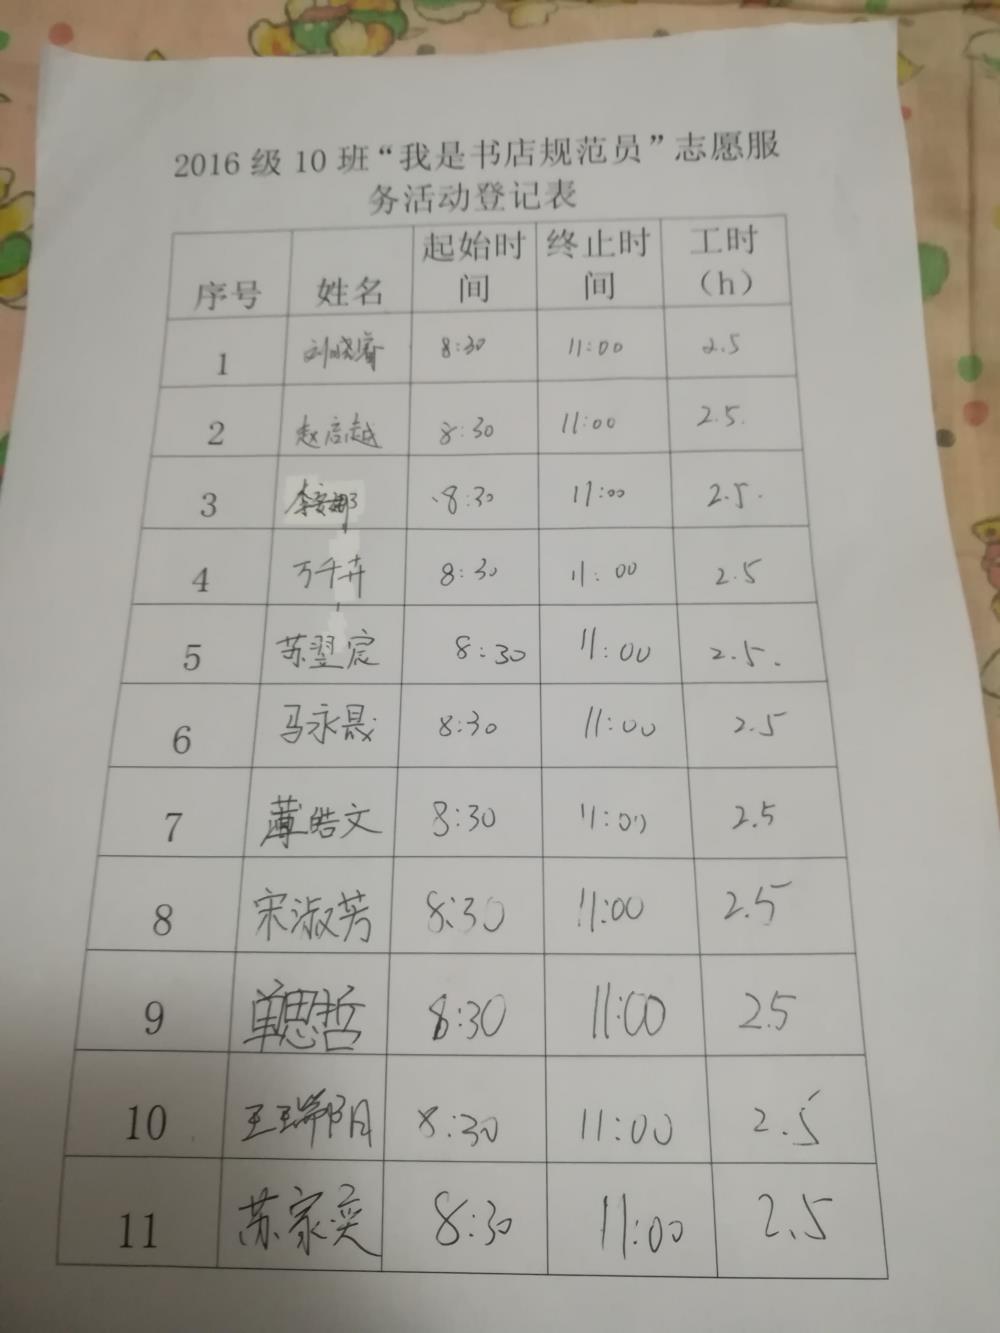 2016 级 10 班“我是书店规范员”志愿服
务活动登记表
序号 姓名 起始时间 终止时间 工时（h）
1 刘晓睿 8:30 11:00 2.5
2 赵启越 8:30 11:00 2.5.
3 李安娜 8:30 11:00 2.5.
4 万千卉 8:30 11:00 2.5
5 苏翌宸 8:30 11:00 2.5.
6 马永晟 8:30 11:00 2.5
7 薄皓文 8:30 11:00 2.5
8 宋淑芳 8:30 11:00 2.5
9 单思哲 8:30 11:00 2.5
10 王瑞阳 8:30 11:00 2.5
11 苏家奕 8:30 11:00 2.5